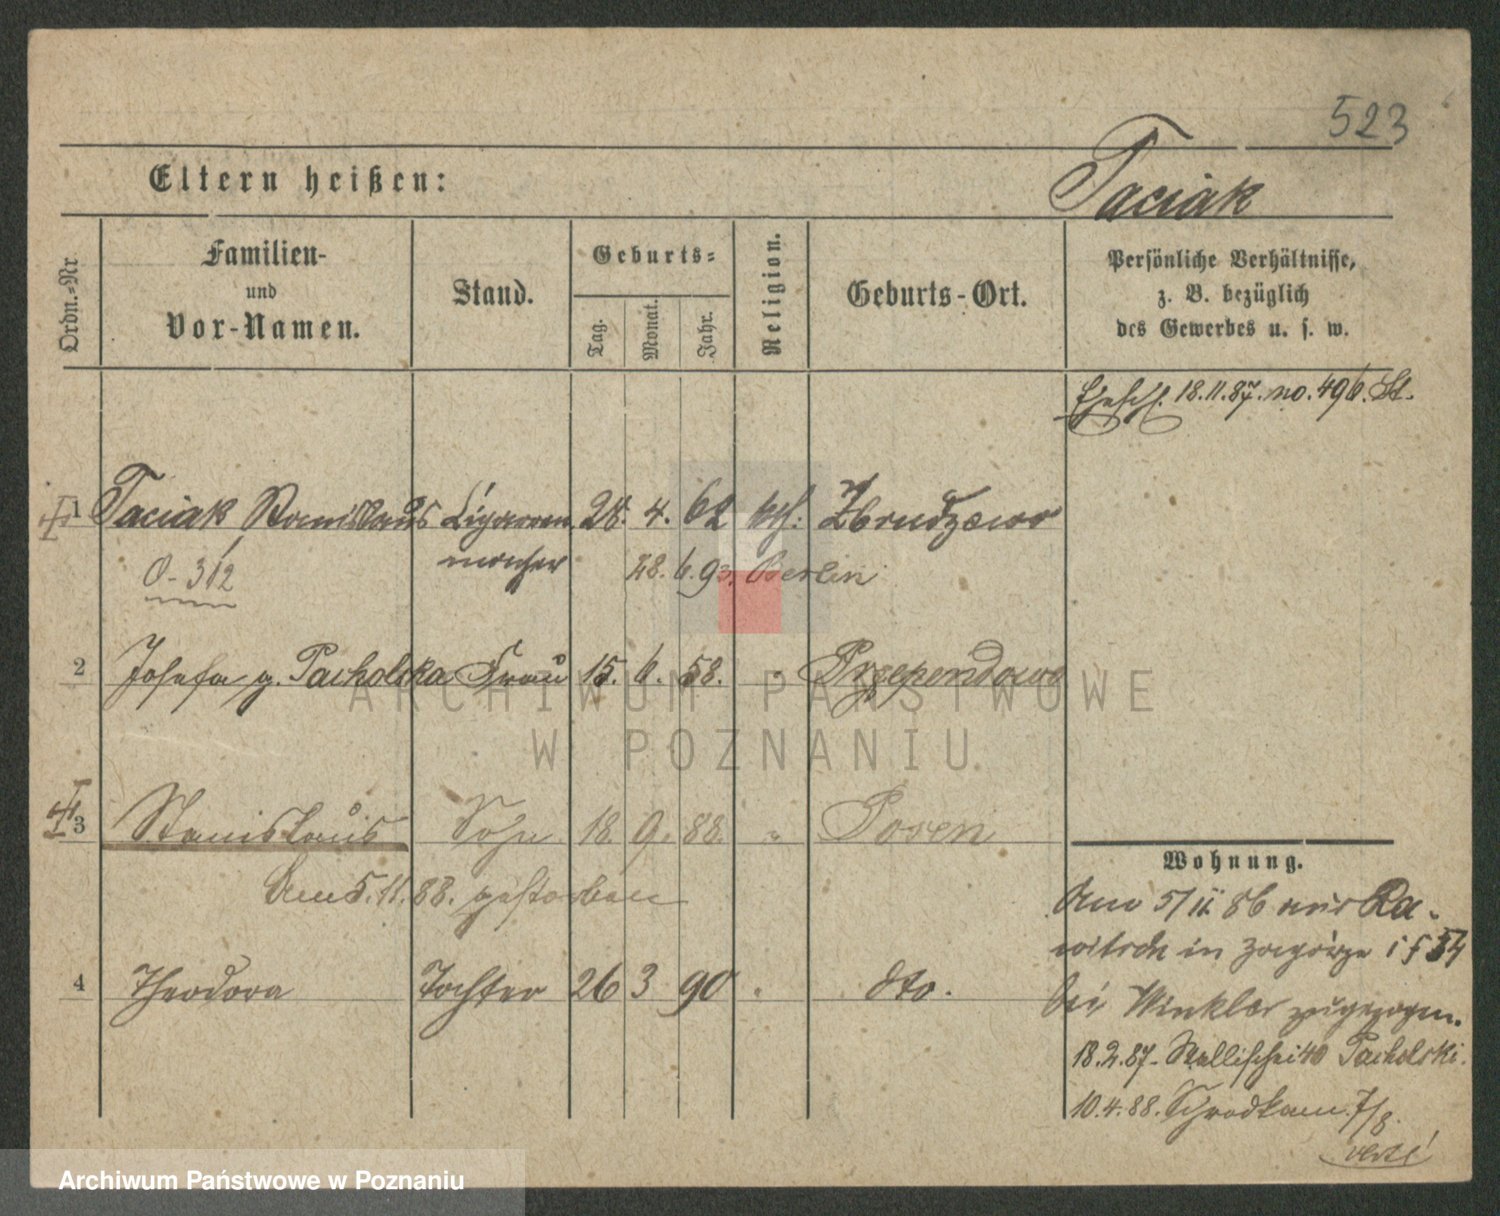 523
Eltern heißen:
Taciak
Ordn.-Nr
Familien-
und
Vor-Namen.
Stand.
Geburts-
Tag.
Monat.
Jahr.
Religion.
Geburts-Ort.
Persönliche Verhältnisse,
z. B. bezüglich
des Gewerbes u. s. w.
Eheschl. 18.11.87. no. 496. St.
1 Taciak Stanislaus Cigarren 28. 4. 62 kth: Zbrudzewo
macher
O-312 28. 6. 93. Berlin
2 Josefa g. Pacholska Frau 15. 6. 58. " Przependowo
3 Stanislaus Sohn 18. 9. 88. " Posen
Am 5.11.88. gestorben
4 Theodora Tochter 26 3 90 " dto.
Wohnung.
Am 5/11 86 aus Ra-
witsch in Zagórze
bei Winkler zugezogen.
18.2.87. Wallischei 40 Pacholski.
10.4.88. Schrodkam. 7/8.
verte!
ARCHIWUM PAŃSTWOWE
W POZNANIU
Archiwum Państwowe w Poznaniu